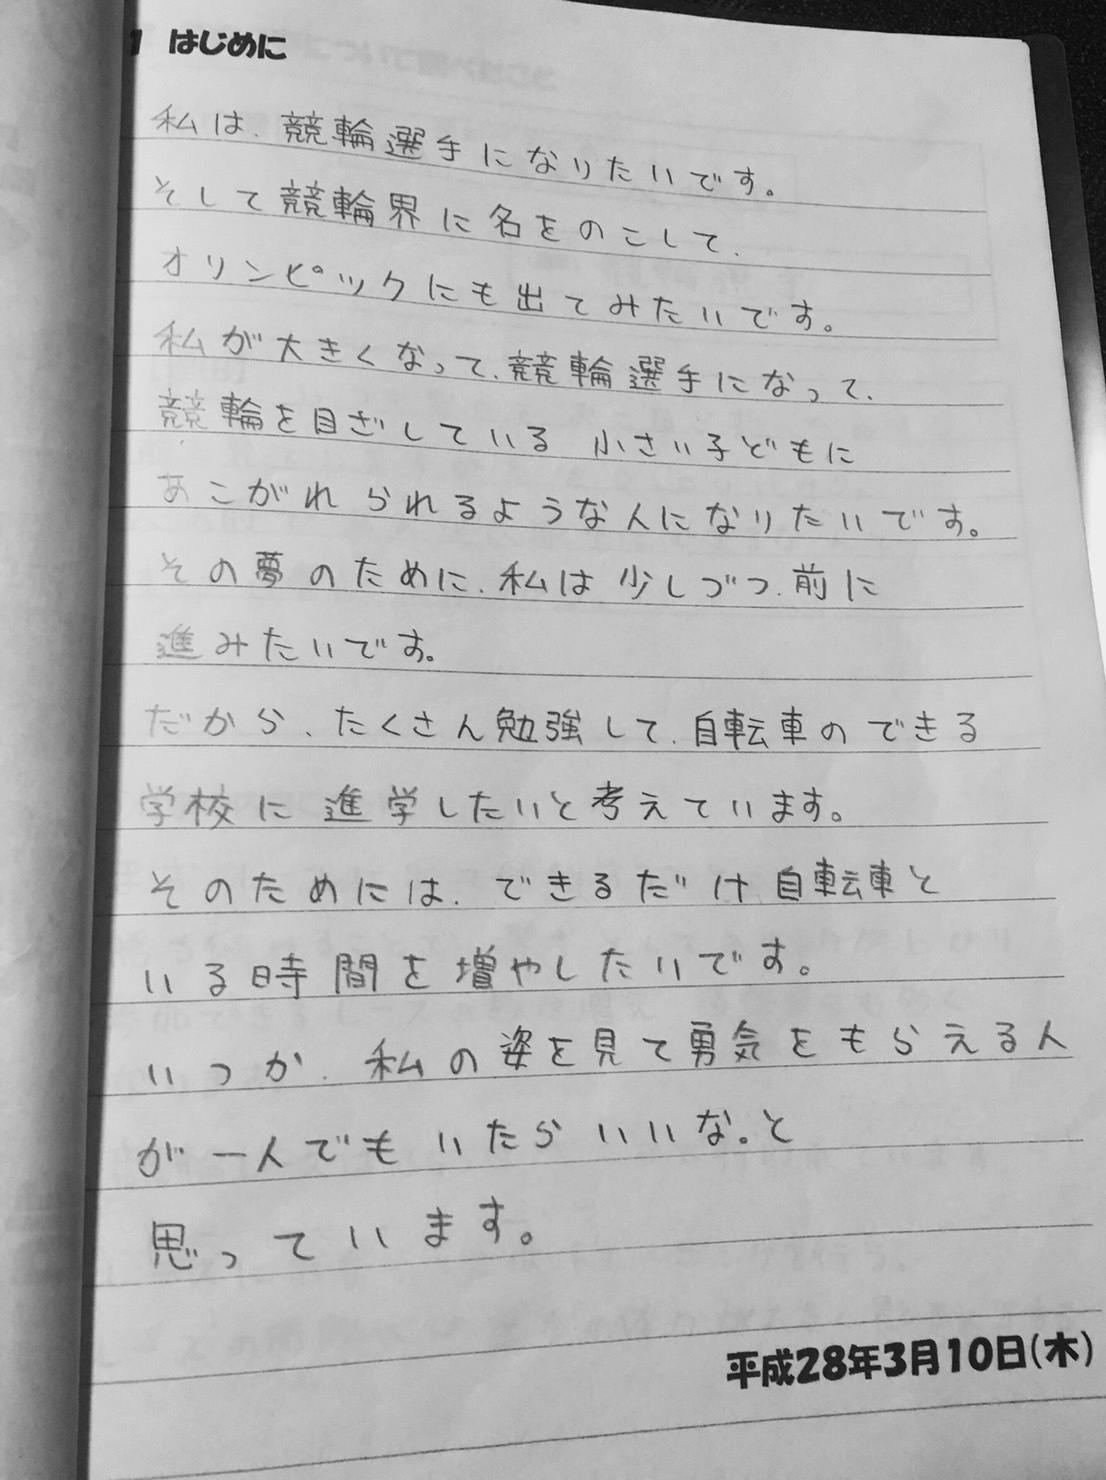 1 はじめに
私は、競輪選手になりたいです。
そして競輪界に名をのこして、
オリンピックにも出てみたいです。
私が大きくなって、競輪選手になって、
競輪を目ざしている 小さい子どもに
あこがれられるような人になりたいです。
その夢のために、私は少しづつ、前に
進みたいです。
だから、たくさん勉強して、自転車のできる
学校に進学したいと考えています。
そのためには、できるだけ、自転車と
いる時間を増やしたいです。
いつか、私の姿を見て勇気をもらえる人
が一人でもいたらいいな。と
思っています。
平成28年3月10日(木)